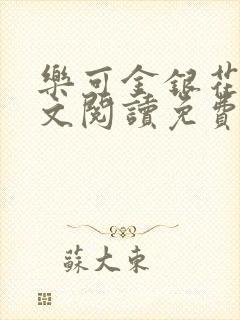 樂可金銀花
文閱讀免費
蘇大東